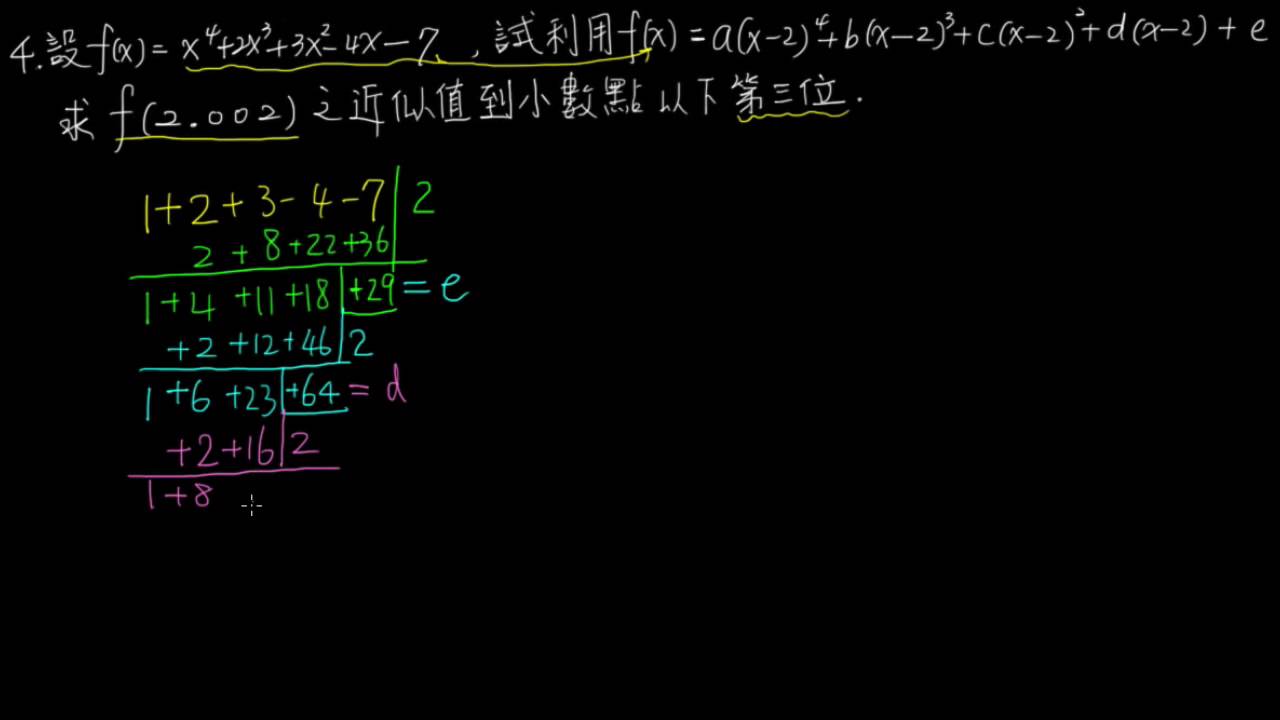 4.設f(x)=x⁴+2x³+3x²-4x-7 , 試利用f(x)=a(x-2)⁴+b(x-2)³+c(x-2)²+d(x-2)+e
求 f(2.002) 之近似值到小數點以下第三位.
1+2+3-4-7 2
2+8+22+36
1+4+11+18 +29 = e
+2+12+46 2
1+6+23 +64 = d
+2+16 2
1+8